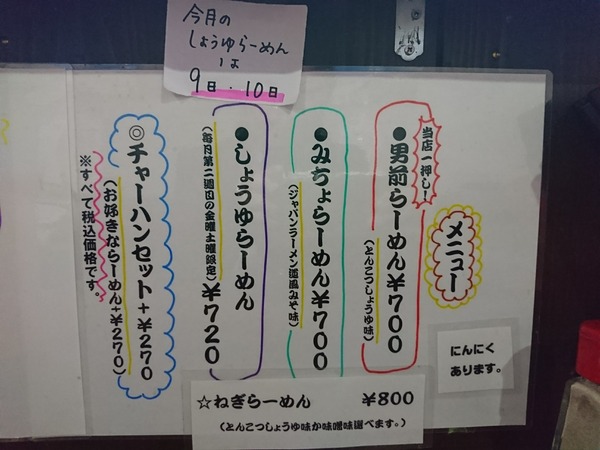 今月の
しょうゆらーめん
は
9日・10日
メニュー
当店一押し!
●男前らーめん¥700
(とんこつしょうゆ味)
●みちょらーめん¥700
(ジャパンラーメン道風みそ味)
●しょうゆらーめん
(毎月第二週目の金曜土曜限定)¥720
◎チャーハンセット+¥270
(お好きならーめん+¥270)
※すべて税込価格です。
にんにく
あります。
☆ねぎらーめん ¥800
(とんこつしょうゆ味か味噌味選べます。)